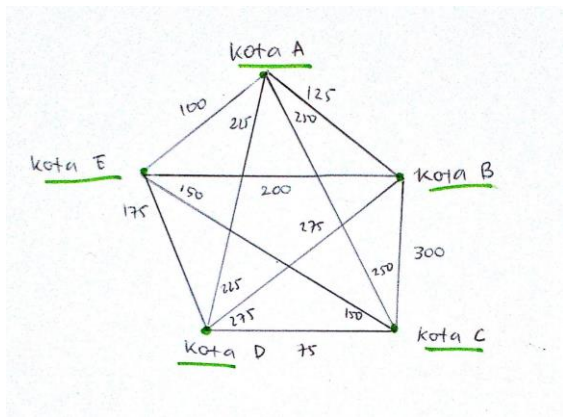 Kota A
100
125
225
250
Kota E
Kota B
150
200
175
275
300
225
250
275
150
Kota D
75
Kota C